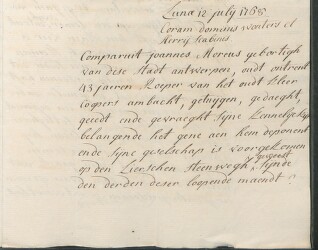 Luna 12 july 1768
Coram dominis wouters et
Herry scabinis
Comparuit joannes Mereus geboortigh
van dese stadt antwerpen, oudt ontrent
43 jaeren Roeper van het oudt Cleer
Coopers ambacht, getuygen, gedaeght,
geeedt ende gevraeght syne kennelyckhyt
belangende het gene aen hem deponent
ende syne geselschap is voorgekomen
op den Lierschen steenwegh, synde
den derden deser loopende maendt?